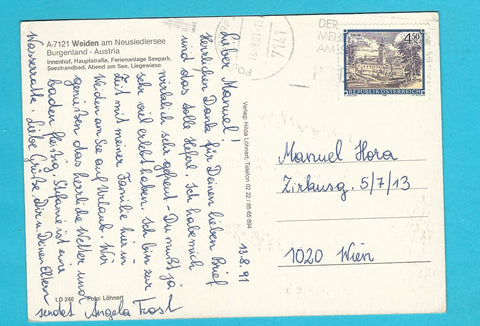 A-7121 Weiden am Neusiedlersee
Burgenland - Austria
Innenhof, Hauptstraße, Ferienanlage Seepark,
Seestrandbad, Abend am See, Liegewiese
13.8.91
Lieber Manuel!
Herzlichen Dank für Deinen lieben Brief
und das tolle Heferl. Ich habe mich
wirklich sehr gefreut. Du mußt ja
sehr viel erlebt haben. Ich bin zur
Zeit mit meiner Familie hier in
Weiden am See auf Urlaub. Wir
genießen das herrliche Wetter und
baden fleißig. Stefanie ist eine
Wasserratte. Liebe Grüße Dir u. Deinen Eltern
sendet Angela Trost
LD 246 Foto: Löhnert
Verlag: Hilda Löhnert, Telefon 02 22 / 85 65 894
7141
DER
4.50
REPUBLIK ÖSTERREICH
Manuel Hora
Zirkusg. 5/7/13
1020 Wien